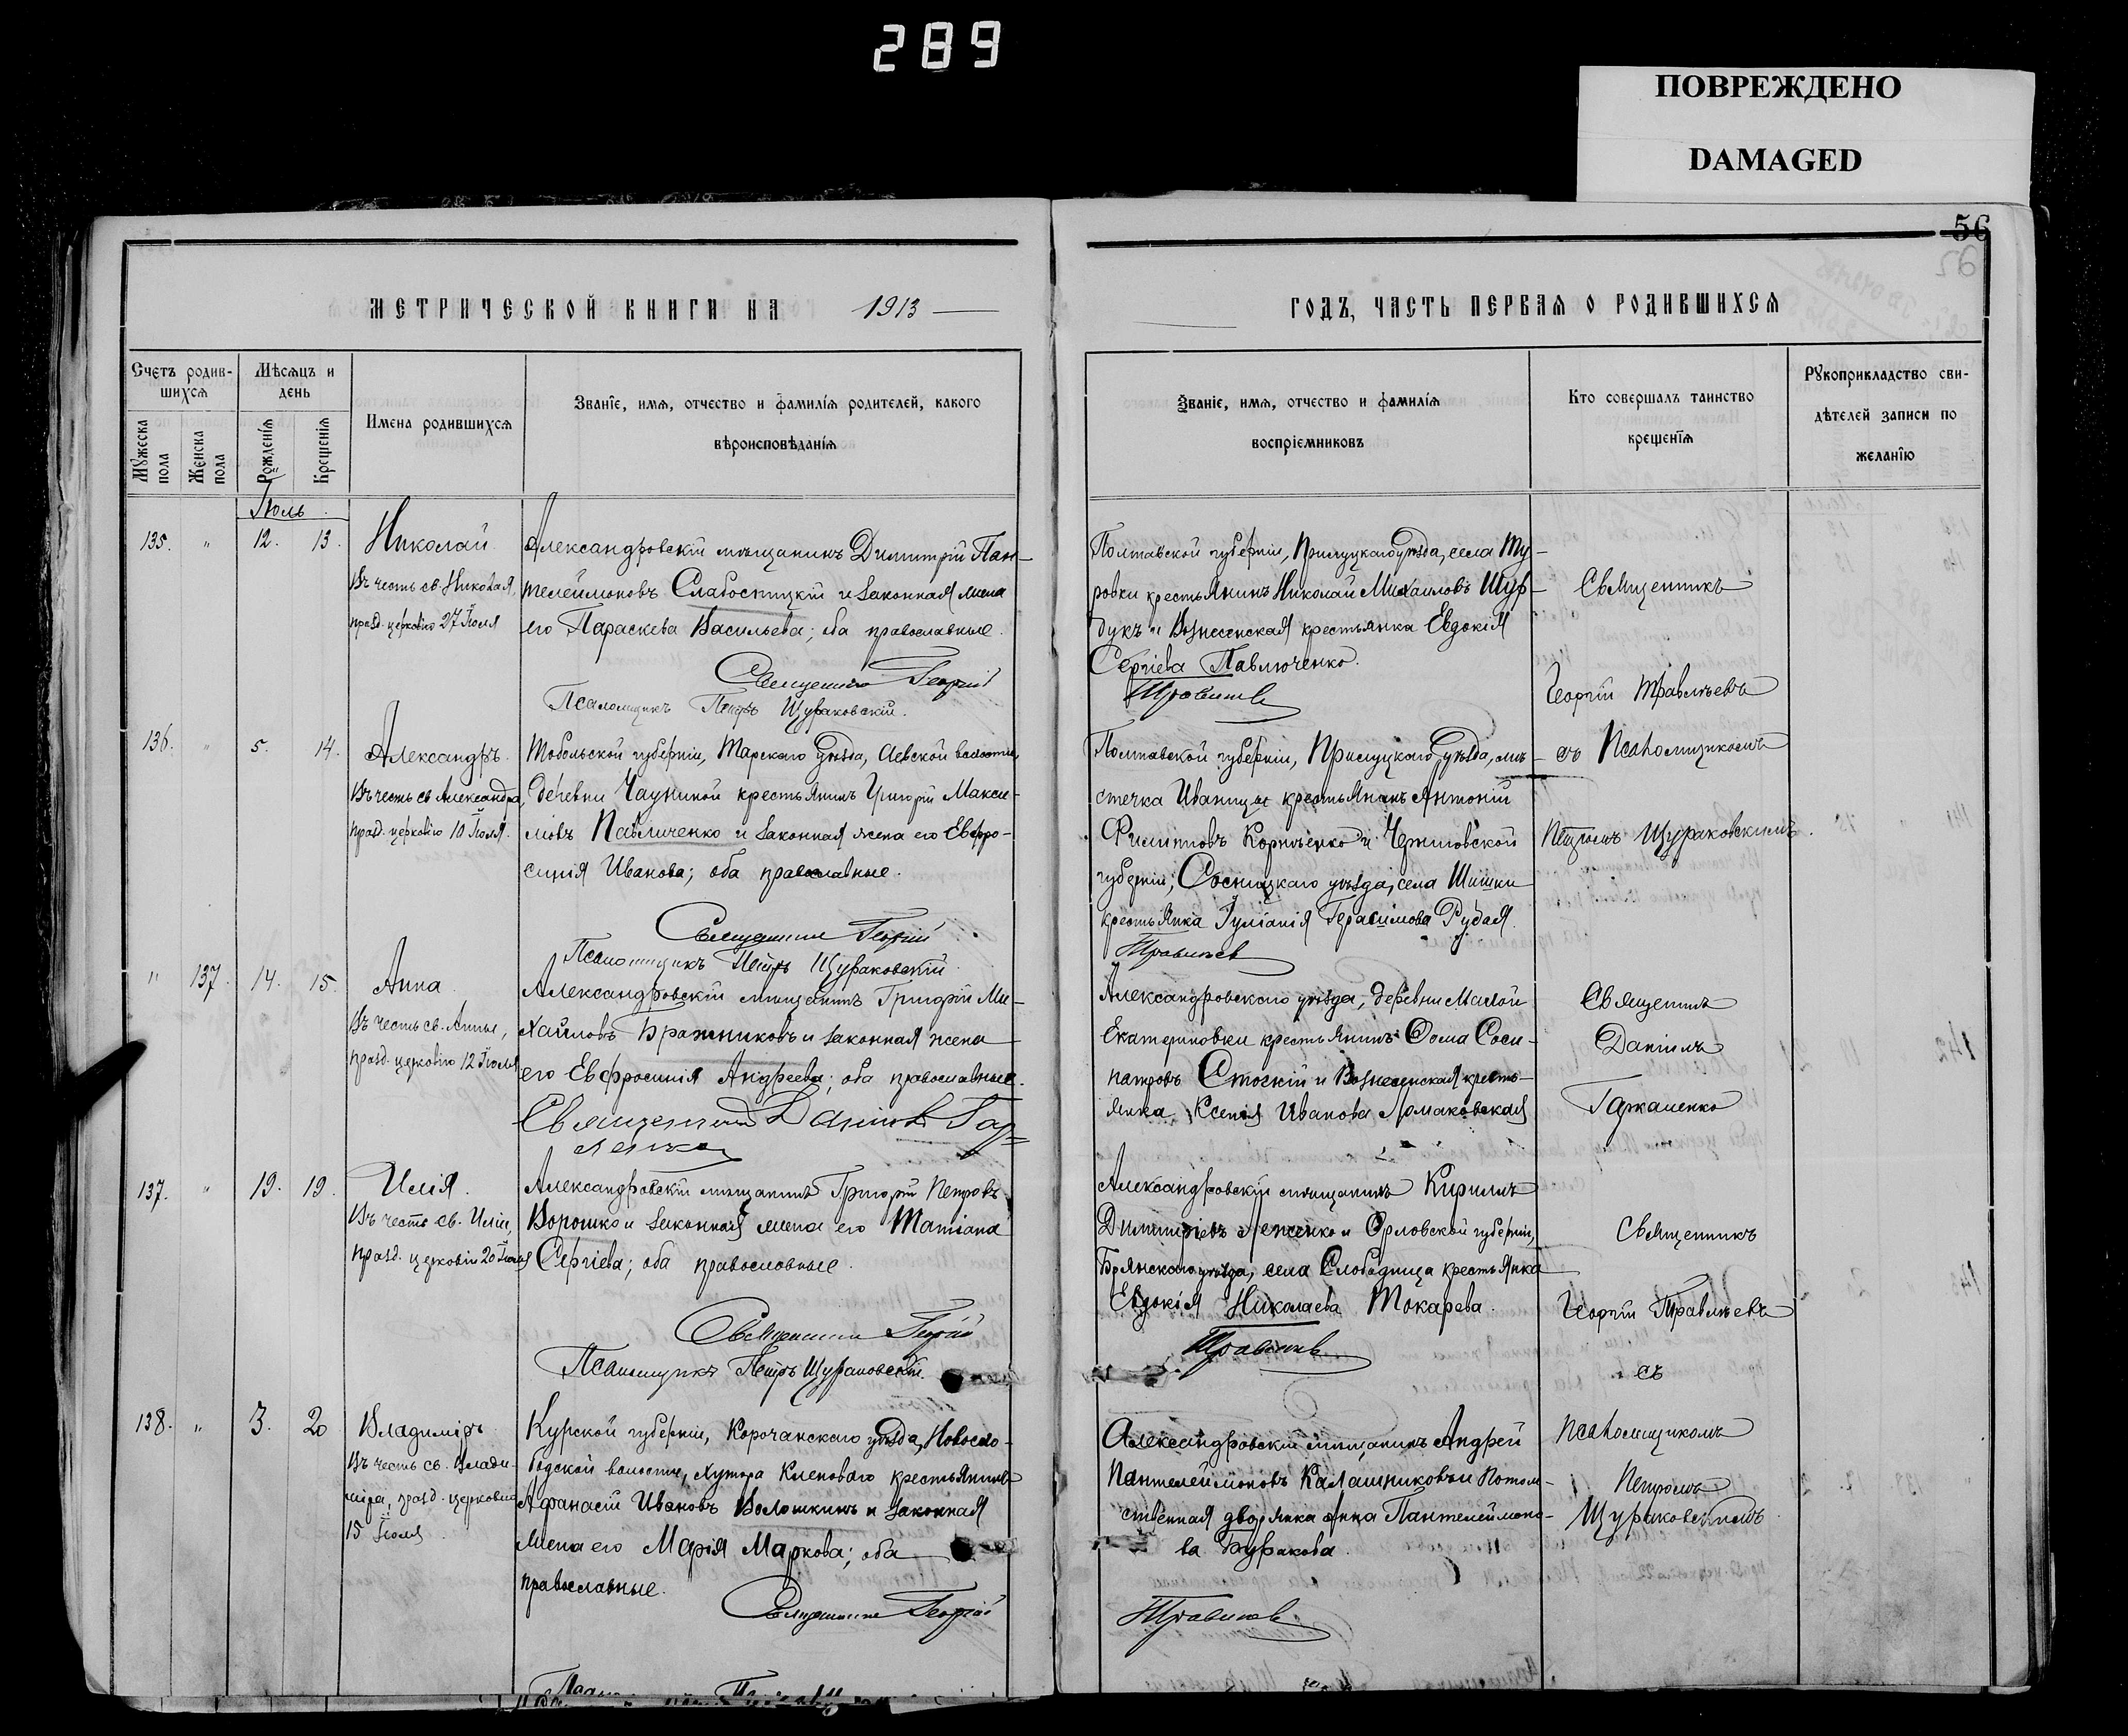 289
ПОВРЕЖДЕНО
DAMAGED
56
56
МЕТРИЧЕСКОЙ КНИГИ НА 1913
Счетъ родив-
шихся
Мѣсяцъ и
день
Мужеска
пола
Женска
пола
Рожденія
Крещенія
Имена родившихся
Званіе, имя, отчество и фамилія родителей, какого
вѣроисповѣданія
Іюль
135. " 12. 13.
Николай
Въ честь св. Николая,
празд. церковію 27 Іюля
Александровскій мѣщанинъ Димитрій Пан-
телеймоновъ Слабоспицкій и законная жена
его Параскева Васильева; оба православные.
Священникъ Георгій
Псаломщикъ Петръ Щураковскій.
136. " 5. 14.
Александръ.
Въ честь св. Александра,
празд. церковію 10 Іюля.
Тобольской губерніи, Тарскаго уѣзда, Аевской волости,
деревни Чауниной крестьянинъ Григорій Макси-
мовъ Павличенко и законная жена его Евфро-
синія Иванова; оба православные.
Священникъ Георгій
Псаломщикъ Петръ Щураковскій
" 137. 14. 15.
Анна
Въ честь св. Анны,
празд. церковію 12 Іюля
Александровскій мѣщанинъ Григорій Ми-
хайловъ Бражниковъ и законная жена
его Евфросинія Андреева; оба православные.
Священникъ Даніилъ
137. " 19. 19.
Илія.
Въ честь св. Иліи,
празд. церковію 20 Іюля
Александровскій мѣщанинъ Григорій Петровъ
Ворошко и законная жена его Татіана
Сергіева; оба православные.
Священникъ Георгій
Псаломщикъ Петръ Щураковскій
138. " 3. 20
Владиміръ
Въ честь св. Влади-
міра, празд. церковію
15 Іюля
Курской губерніи, Корочанскаго уѣзда, Новосло-
бодской волости, хутора Кленоваго крестьянинъ
Афанасій Ивановъ Волошкинъ и законная
жена его Марія Маркова; оба
православные.
Священникъ Георгій
ГОДЪ, ЧАСТЬ ПЕРВАЯ О РОДИВШИХСЯ
Званіе, имя, отчество и фамилія
воспріемниковъ
Кто совершалъ таинство
крещенія
Рукоприкладство сви-
дѣтелей записи по
желанію
Полтавской губерніи, Прилуцкаго уѣзда, села Ту-
ровки крестьянинъ Николай Михаиловъ Шур-
дукъ и Вознесенская крестьянка Евдокія
Сергіева Павлюченко.
Травлѣевъ
Священникъ
Георгій Травлѣевъ
съ Псаломщикомъ
Петромъ Щураковскимъ.
Полтавской губерніи, Прилуцкаго уѣзда, мѣ-
стечка Иваницы крестьянинъ Антоній
Филипповъ Корніенко и Черниговской
губерніи, Сосницкаго уѣзда, села Шишки
крестьянка Іуліанія Герасимова Рудая.
Травлѣевъ
Александровскаго уѣзда, деревни Малой
Екатериновки крестьянинъ Ѳома Соси-
патровъ Стоскій и Вознесенская кресть-
янка Ксенія Иванова Ломаковская
Священникъ
Даніилъ
Александровскій мѣщанинъ Кириллъ
Димитріевъ Леженко и Орловской губерніи,
Брянскаго уѣзда, села Слободища крестьянка
Евдокія Николаева Токарева.
Травлѣевъ
Священникъ
Георгій Травлѣевъ
съ
Псаломщикомъ
Петромъ
Щураковскимъ
Александровскій мѣщанинъ Андрей
Пантелеймоновъ Калашниковъ и Потом-
ственная дворянка Анна Пантелеймоно-
ва Буракова.
Травлѣевъ